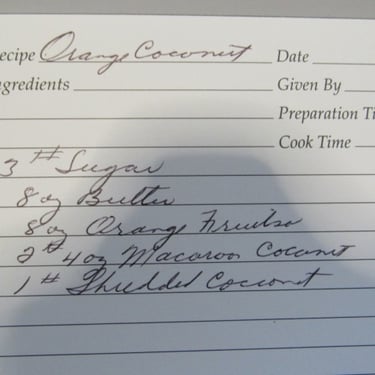 ecipe Orange Coconut Date
ngredients Given By
Preparation Ti
Cook Time
3 # Sugar
8 oz Butter
8 oz Orange
2 # 4 oz Macaroon Coconut
1 # Shredded Coconut